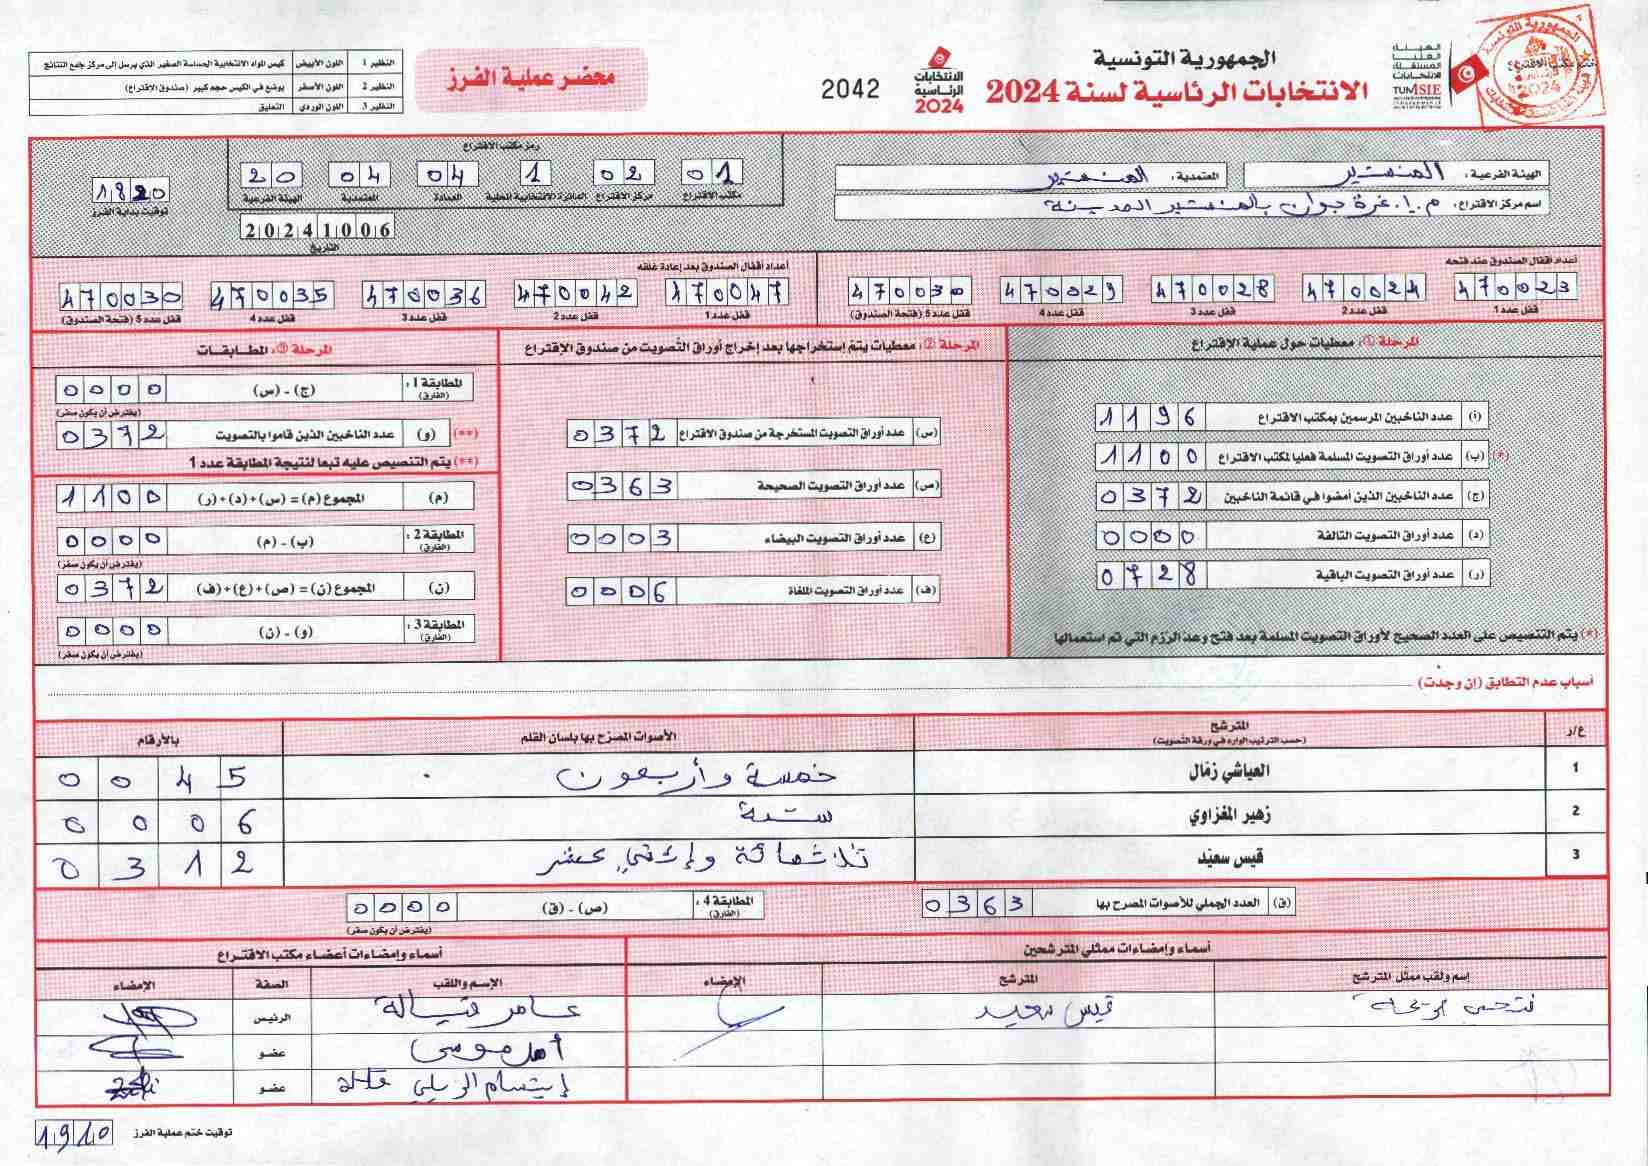 الجمهورية التونسية
الانتخابات الرئاسية لسنة 2024
الهيئة العليا المستقلة للانتخابات
TUNISIE
ختم مكتب الاقتراع
الانتخابات الرئاسية 2024
2042
محضر عملية الفرز
النظير 1 اللون الأبيض كيس المواد الانتخابية الحساسة الصغير الذي يرسل إلى مركز جامع النتائج
النظير 2 اللون الأصفر يوضع في الكيس حجم كبير (صندوق الاقتراع)
النظير 3 اللون الوردي التعليق
الهيئة الفرعية : المنستير
المعتمدية : المنستير
اسم مركز الاقتراع : م.إ. غرة جوان بالمنستير المدينة
رمز مكتب الاقتراع
01 مكتب الاقتراع
02 مركز الاقتراع
1 الدائرة الانتخابية المحلية
04 العمادة
04 المعتمدية
20 الهيئة الفرعية
20241006
التاريخ
1820
توقيت بداية الفرز
أعداد أقفال الصندوق عند فتحه
470023 قفل عدد 1
470024 قفل عدد 2
470028 قفل عدد 3
470029 قفل عدد 4
470030 قفل عدد 5 (فتحة الصندوق)
أعداد أقفال الصندوق بعد إعادة غلقه
470047 قفل عدد 1
470042 قفل عدد 2
470036 قفل عدد 3
470035 قفل عدد 4
470030 قفل عدد 5 (فتحة الصندوق)
المرحلة ①: معطيات حول عملية الاقتراع
(أ) عدد الناخبين المرسمين بمكتب الاقتراع 1196
(*) (ب) عدد أوراق التصويت المسلمة فعليا لمكتب الاقتراع 1100
(ج) عدد الناخبين الذين أمضوا في قائمة الناخبين 0372
(د) عدد أوراق التصويت التالفة 0000
(ر) عدد أوراق التصويت الباقية 0728
(*) يتم التنصيص على العدد الصحيح لأوراق التصويت المسلمة بعد فتح وعد الرزم التي تم استعمالها
المرحلة ②: معطيات يتم إستخراجها بعد إخراج أوراق التصويت من صندوق الاقتراع
(س) عدد أوراق التصويت المستخرجة من صندوق الاقتراع 0372
(ص) عدد أوراق التصويت الصحيحة 0363
(ع) عدد أوراق التصويت البيضاء 0003
(ف) عدد أوراق التصويت الملغاة 0006
المرحلة ③: المطابقات
المطابقة 1 : (الفارق) (ج) - (س) 0000
(يفترض أن يكون صفر)
(**) (و) عدد الناخبين الذين قاموا بالتصويت 0372
(**) يتم التنصيص عليه تبعا لنتيجة المطابقة عدد 1
(م) المجموع (م) = (س) + (د) + (ر) 1100
المطابقة 2 : (الفارق) (ب) - (م) 0000
(يفترض أن يكون صفر)
(ن) المجموع (ن) = (ص) + (ع) + (ف) 0372
المطابقة 3 : (الفارق) (و) - (ن) 0000
(يفترض أن يكون صفر)
أسباب عدم التطابق (إن وجدت)
ع/ر المترشح الأصوات المصرّح بها بلسان القلم بالأرقام
(حسب الترتيب الوارد في ورقة التصويت)
1 العياشي زمّال خمسة وأربعون 0045
2 زهير المغزاوي ستة 0006
3 قيس سعيّد ثلاثمائة وإثني عشر 0312
(ق) العدد الجملي للأصوات المصرح بها 0363
المطابقة 4 : (الفارق) (ص) - (ق) 0000
(يفترض أن يكون صفر)
أسماء وإمضاءات ممثلي المترشحين
إسم ولقب ممثل المترشح المترشح الإمضاء
فتحي قيس سعيد
أسماء وإمضاءات أعضاء مكتب الاقتراع
الإسم واللقب الصفة الإمضاء
عامر قيالة الرئيس
أمل موسى عضو
إبتسام عضو
توقيت ختم عملية الفرز 1910